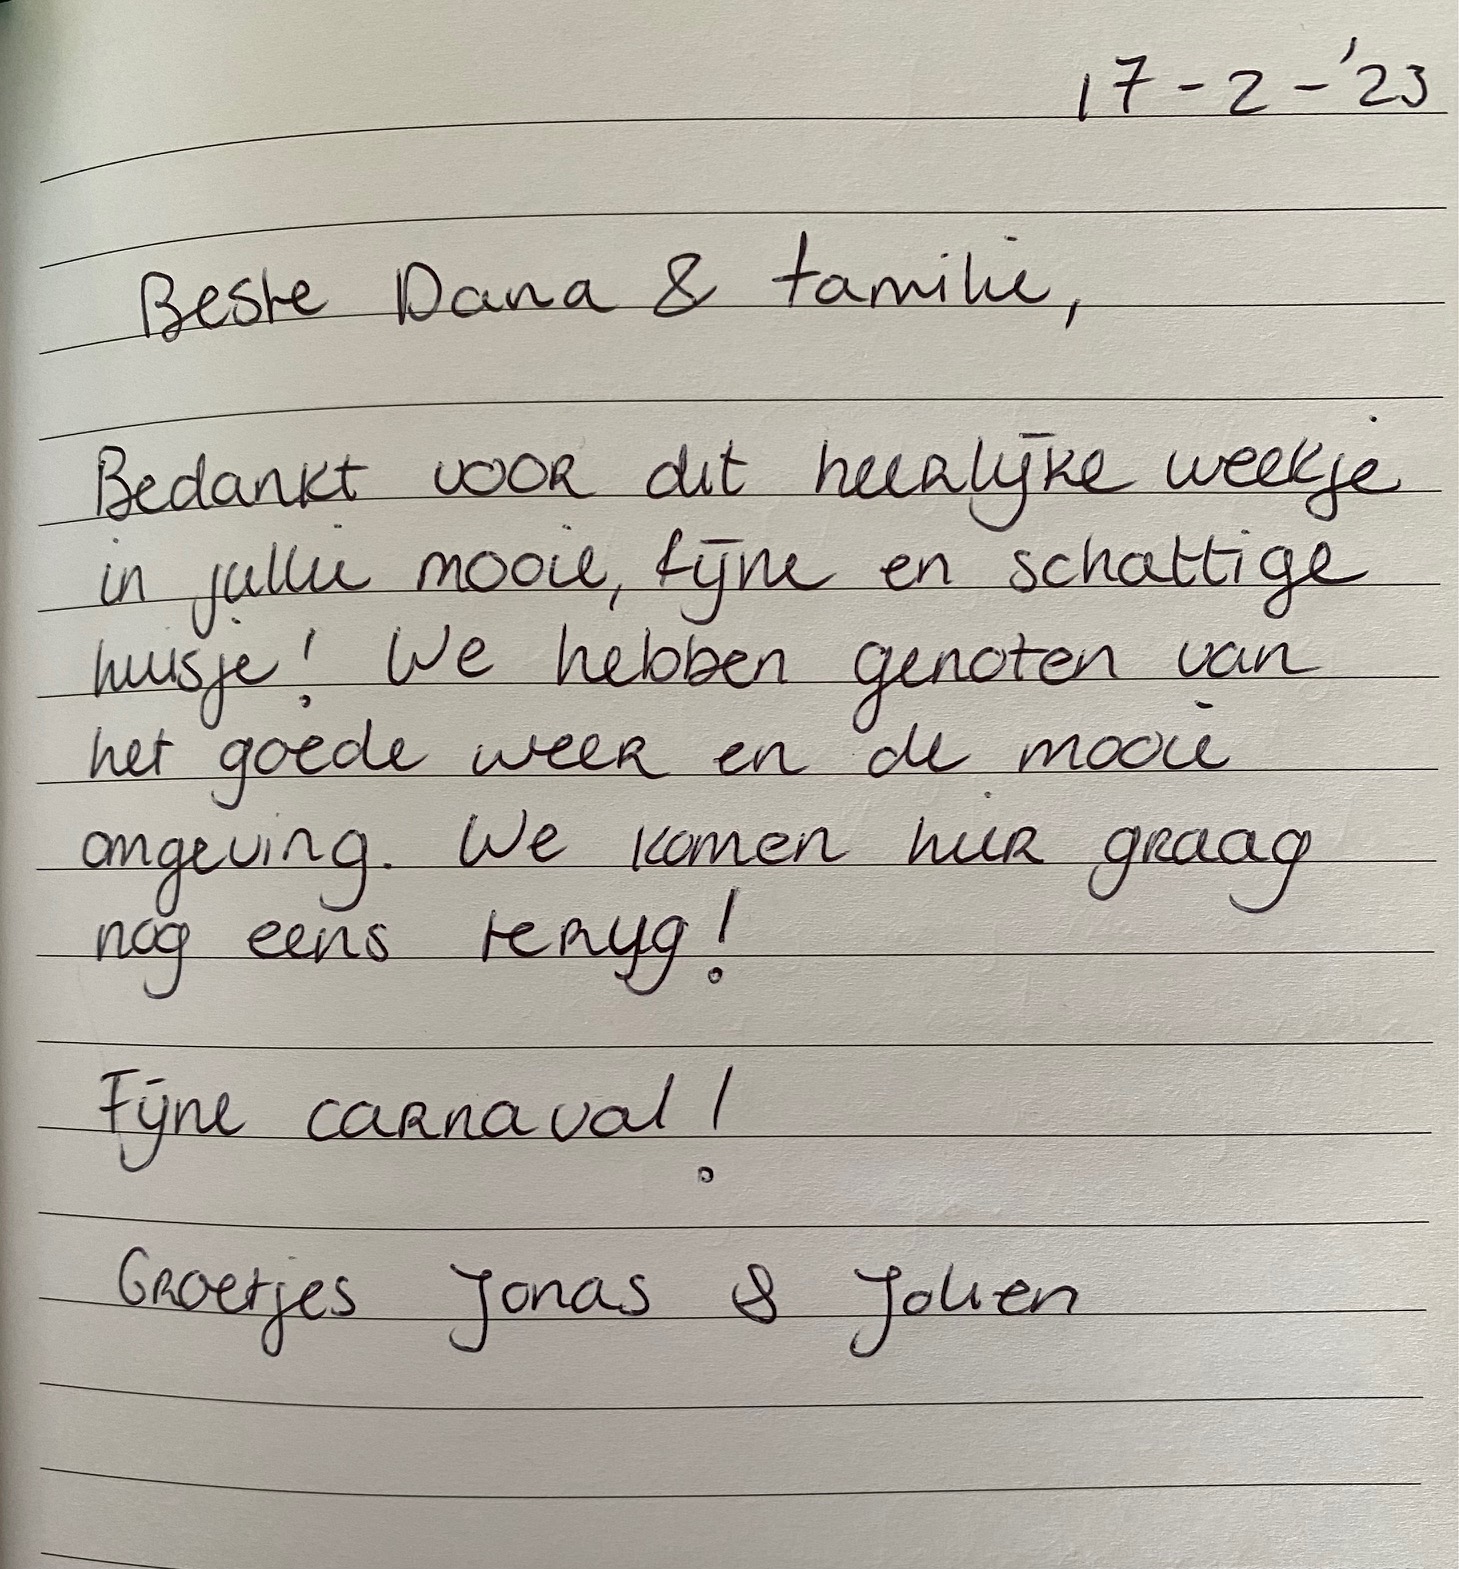 17-2-'23
Beste Dana & familie,
Bedankt voor dit heerlijke weekje
in jullie mooie, fijne en schattige
huisje! We hebben genoten van
het goede weer en de mooie
omgeving. We komen hier graag
nog eens terug!
Fijne carnaval!
Groetjes Jonas & Jolien